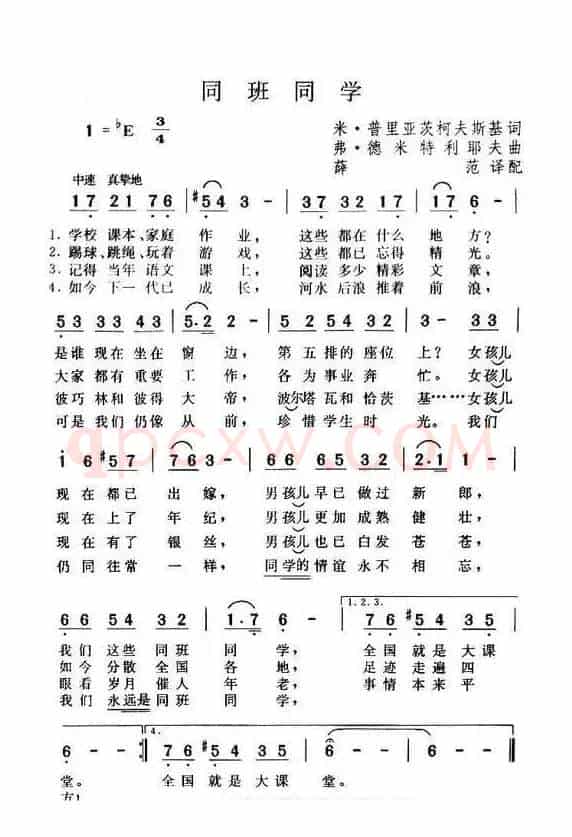 同班同学
1=♭E 3/4
米·普里亚茨柯夫斯基词
弗·德米特利耶夫曲
薛范译配
中速 真挚地
17 21 76 #54 3 - 37 32 17 17 6 -
1. 学校 课本、家庭 作 业， 这些 都在 什么 地 方？
2. 踢球、跳绳、玩着 游 戏， 这些 都已 忘得 精 光。
3. 记得 当年 语文 课 上， 阅读 多少 精彩 文 章，
4. 如今 下一 代已 成 长， 河水 后浪 推着 前 浪，
53 33 43 5·2 2 - 25 54 32 3 - 33
是谁 现在 坐在 窗 边， 第五 排的 座位 上？ 女孩儿
大家 都有 重要 工 作， 各为 事业 奔 忙。 女孩儿
彼巧 林和 彼得 大 帝， 波尔塔 瓦和 恰茨 基…… 女孩儿
可是 我们 仍像 从 前， 珍惜 学生 时 光。 我们
i 6 #57 763 - 66 65 32 2·1 1 -
现在 都已 出 嫁， 男孩儿 早已 做过 新 郎，
现在 上了 年 纪， 男孩儿 更加 成熟 健 壮，
现在 有了 银 丝， 男孩儿 也已 白发 苍 苍，
仍同 往常 一 样， 同学的 情谊 永不 相 忘，
66 54 32 1·7 6 - 1.2.3. 76 #54 35
我们 这些 同班 同 学， 全国 就是 大课
如今 分散 全国 各 地， 足迹 走遍 四
眼看 岁月 催人 年 老， 事情 本来 平
我们 永远是 同班 同 学，
6 - - 4. 76 #54 35 6 - - 6 - -
堂。 全国 就是 大课 堂。
方！
qpcxw.com